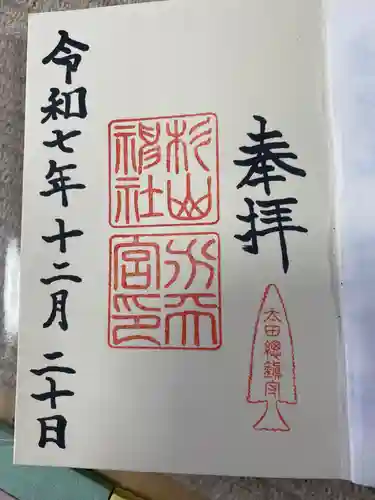 奉拝
太田總鎮守
杉山神社
水天宮印
令和七年十二月二十日